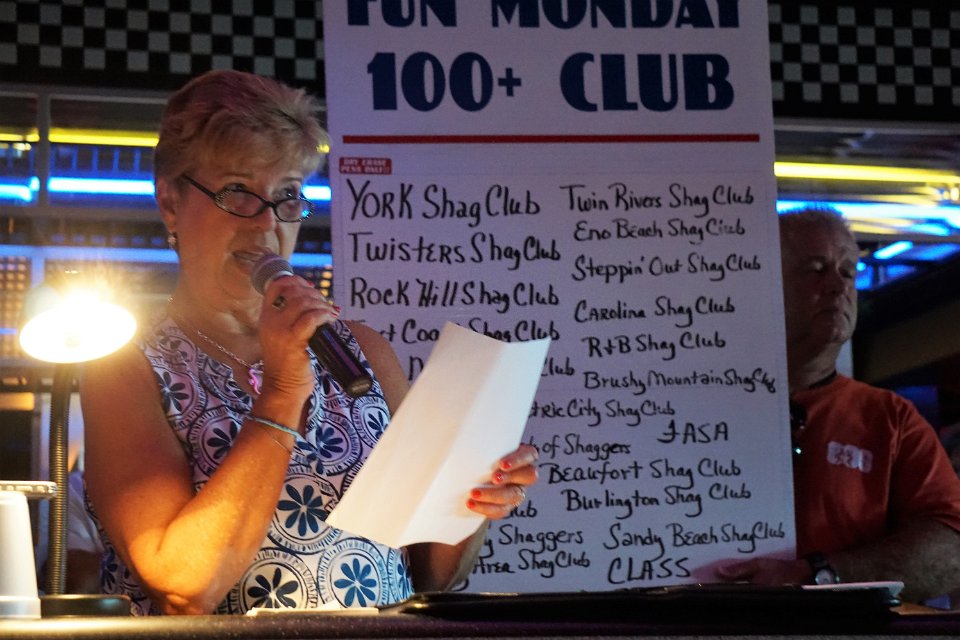 FUN MONDAY
100+ CLUB
DRY ERASE
PENS ONLY!!
YORK Shag Club
TWISTERS Shag Club
Rock Hill Shag Club
Shag Club
Twin Rivers Shag Club
Eno Beach Shag Club
Steppin' Out Shag Club
Carolina Shag Club
R&B Shag Club
Brushy Mountain Shag Club
City Shag Club
FASA
of Shaggers
Beaufort Shag Club
Burlington Shag Club
Shaggers
Sandy Beach Shag Club
Area Shag Club
CLASS